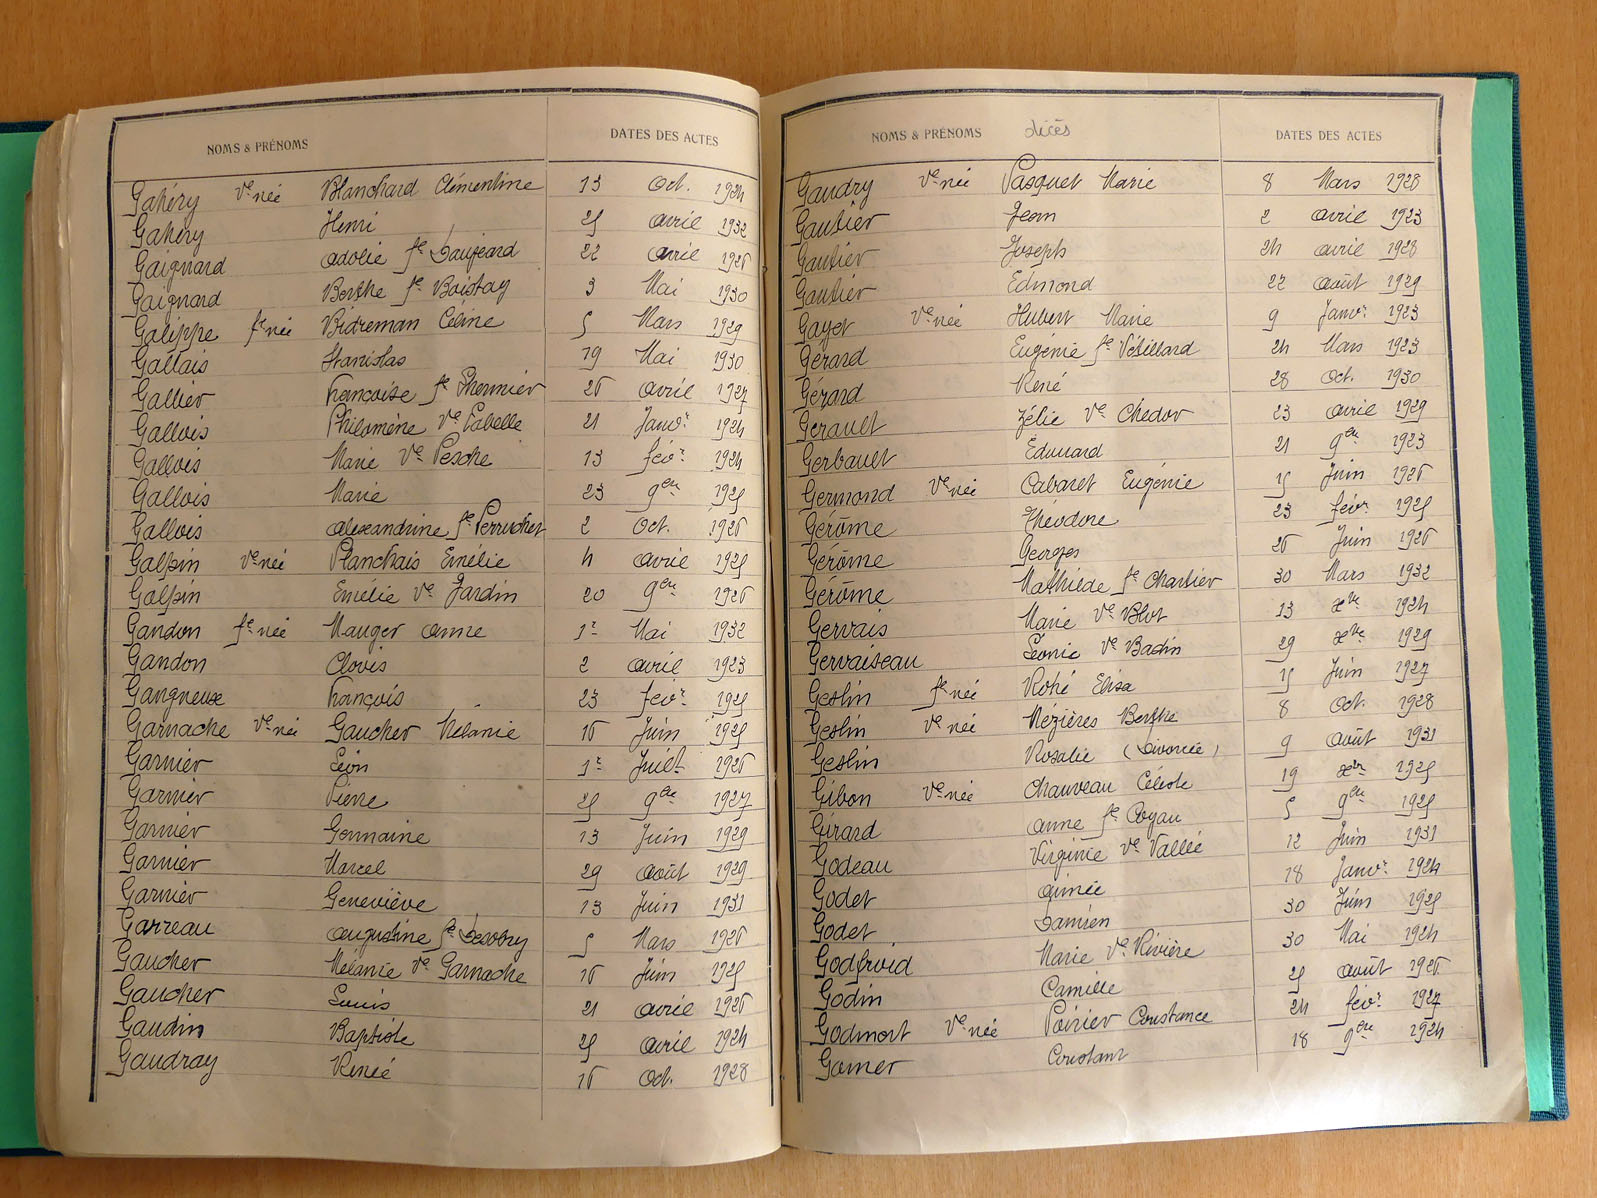 NOMS & PRÉNOMS DATES DES ACTES
Gahéry Ve née Blanchard Clémentine 13 Oct. 1924
Gahéry Henri 25 avril 1932
Gaignard adolie fe Laujeard 22 avril 1926
Gaignard Berthe fe Boistay 3 Mai 1930
Galippe fe née Bidreman Céline 5 Mars 1929
Gallais Stanislas 19 Mai 1930
Gallier Françoise fe Thermier 26 avril 1927
Gallois Philomène Ve Labelle 21 Janvr 1924
Gallois Marie Ve Pesche 13 févr 1924
Gallois Marie 23 9bre 1925
Gallois alexandrine fe Perruchet 2 Oct. 1926
Galpin Ve née Planchais Emélie 4 avril 1925
Galpin Emélie Ve Jardin 20 9bre 1926
Gandon fe née Mauger anne 1er Mai 1932
Gandon Clovis 2 avril 1923
Gangneux François 23 févr 1925
Garnache Ve née Gaucher Mélanie 16 Juin 1925
Garnier Léon 1er Juilt 1926
Garnier Pierre 25 9bre 1927
Garnier Germaine 13 Juin 1929
Garnier Marcel 29 août 1929
Garnier Geneviève 13 Juin 1931
Garreau augustine fe Desobry 5 Mars 1926
Gaucher Mélanie Ve Garnache 16 Juin 1925
Gaucher Louis 21 avril 1926
Gaudin Baptiste 25 avril 1924
Gaudray René 16 Oct. 1928
NOMS & PRÉNOMS décès DATES DES ACTES
Gaudry Ve née Pasquet Marie 8 Mars 1928
Gautier Jean 2 avril 1923
Gautier Joseph 24 avril 1928
Gautier Edmond 22 août 1929
Gayet Ve née Hubert Marie 9 Janvr 1923
Gérard Eugénie fe Vétillard 24 Mars 1923
Gérard René 28 Oct. 1930
Gérault Zélie Ve Chedor 23 avril 1929
Gerbault Edouard 21 9bre 1923
Germond Ve née Cabaret Eugénie 15 Juin 1926
Gérôme Théodore 23 févr 1925
Gérôme Georges 26 Juin 1926
Gérôme Mathilde fe Chartier 30 Mars 1932
Gervais Marie Ve Blot 13 xbre 1924
Gervaiseau Léonie Ve Badin 29 xbre 1929
Geslin fe née Rohé Elisa 15 Juin 1927
Geslin Ve née Mézières Berthe 8 Oct. 1928
Geslin Rosalie (Divorcée) 9 août 1931
Gibon Ve née Chauveau Céleste 19 xbre 1925
Girard anne fe Coyau 5 9bre 1925
Godeau Virginie Ve Vallée 12 Juin 1931
Godet aimée 18 Janvr 1924
Godet Damien 30 Juin 1925
Godefroid Marie Ve Rivière 30 Mai 1924
Godin Camille 25 août 1926
Godmort Ve née Poirier Constance 24 févr 1927
Gomer Constant 18 9bre 1924